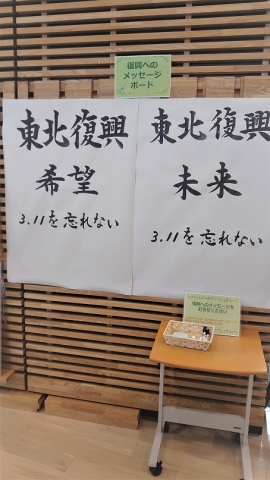 復興への
メッセージ
ボード
東北復興
希望
3.11を忘れない
東北復興
未来
3.11を忘れない
復興へのメッセージを
お寄せください